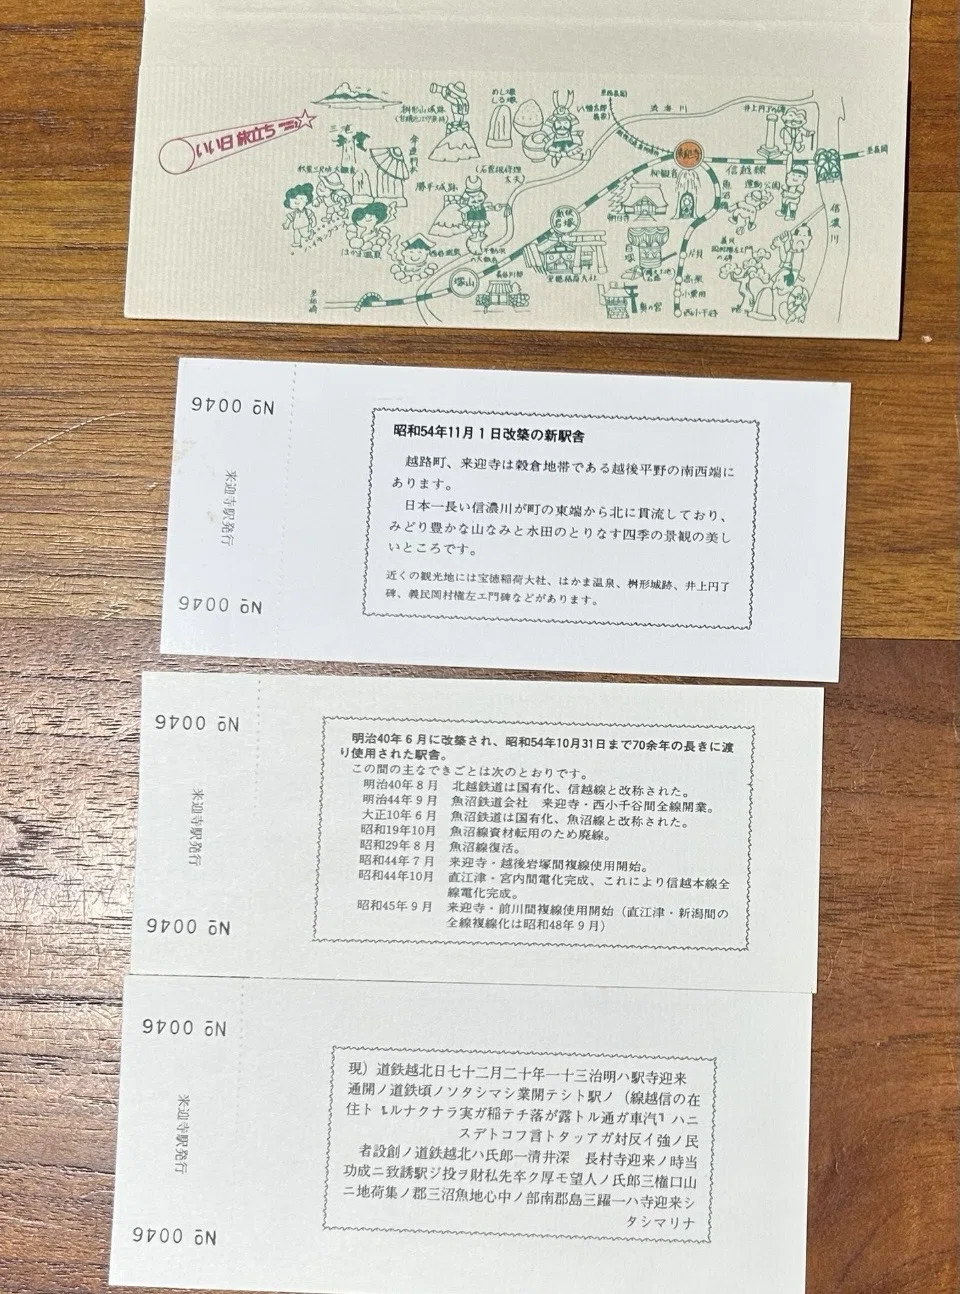 いい日旅立ち
三竜
勝平城跡
八幡太郎
渋海川
井上円了の碑
至長岡
信越線
魚沼線
運動公園
来迎寺
越後岩塚
塚山
朝日寺
宝徳稲荷大社
長谷川邸
はかま温泉
西谷温泉
片貝
高梨
小粟田
西小千谷
奥の宮
信濃川
至柏崎
№ 0046
来迎寺駅発行
№ 0046
昭和54年11月1日改築の新駅舎
越路町、来迎寺は穀倉地帯である越後平野の南西端に
あります。
日本一長い信濃川が町の東端から北に貫流しており、
みどり豊かな山なみと水田のとりなす四季の景観の美し
いところです。
近くの観光地には宝徳稲荷大社、はかま温泉、桝形城跡、井上円了
碑、義民岡村権左エ門碑などがあります。
№ 0046
来迎寺駅発行
№ 0046
明治40年6月に改築され、昭和54年10月31日まで70余年の長きに渡
り使用された駅舎。
この間の主なできごとは次のとおりです。
明治40年8月 北越鉄道は国有化、信越線と改称された。
明治44年9月 魚沼鉄道会社 来迎寺・西小千谷間全線開業。
大正10年6月 魚沼鉄道は国有化、魚沼線と改称された。
昭和19年10月 魚沼線資材転用のため廃線。
昭和29年8月 魚沼線復活。
昭和44年7月 来迎寺・越後岩塚間複線使用開始。
昭和44年10月 直江津・宮内間電化完成、これにより信越本線全
線電化完成。
昭和45年9月 来迎寺・前川間複線使用開始（直江津・新潟間の
全線複線化は昭和48年9月）
№ 0046
来迎寺駅発行
№ 0046
来迎寺駅ハ明治三十一年十二月二十七日北越鉄道（現
在の信越線）ノ駅トシテ開業シマシタソノ頃鉄道ノ開通
ニハ『汽車ガ通ルト露が落チテ稲ガ実ラナクナル』ト住
民ノ強イ反対ガアッタト言フコトデス
当時ノ来迎寺村長 深井清一郎氏ハ北越鉄道ノ創設者
山口権三郎氏ノ人望モ厚ク卒先私財ヲ投ジ駅誘致ニ成功
シ来迎寺ハ一躍三島郡南部ノ中心地魚沼三郡ノ集荷地ニ
ナリマシタ